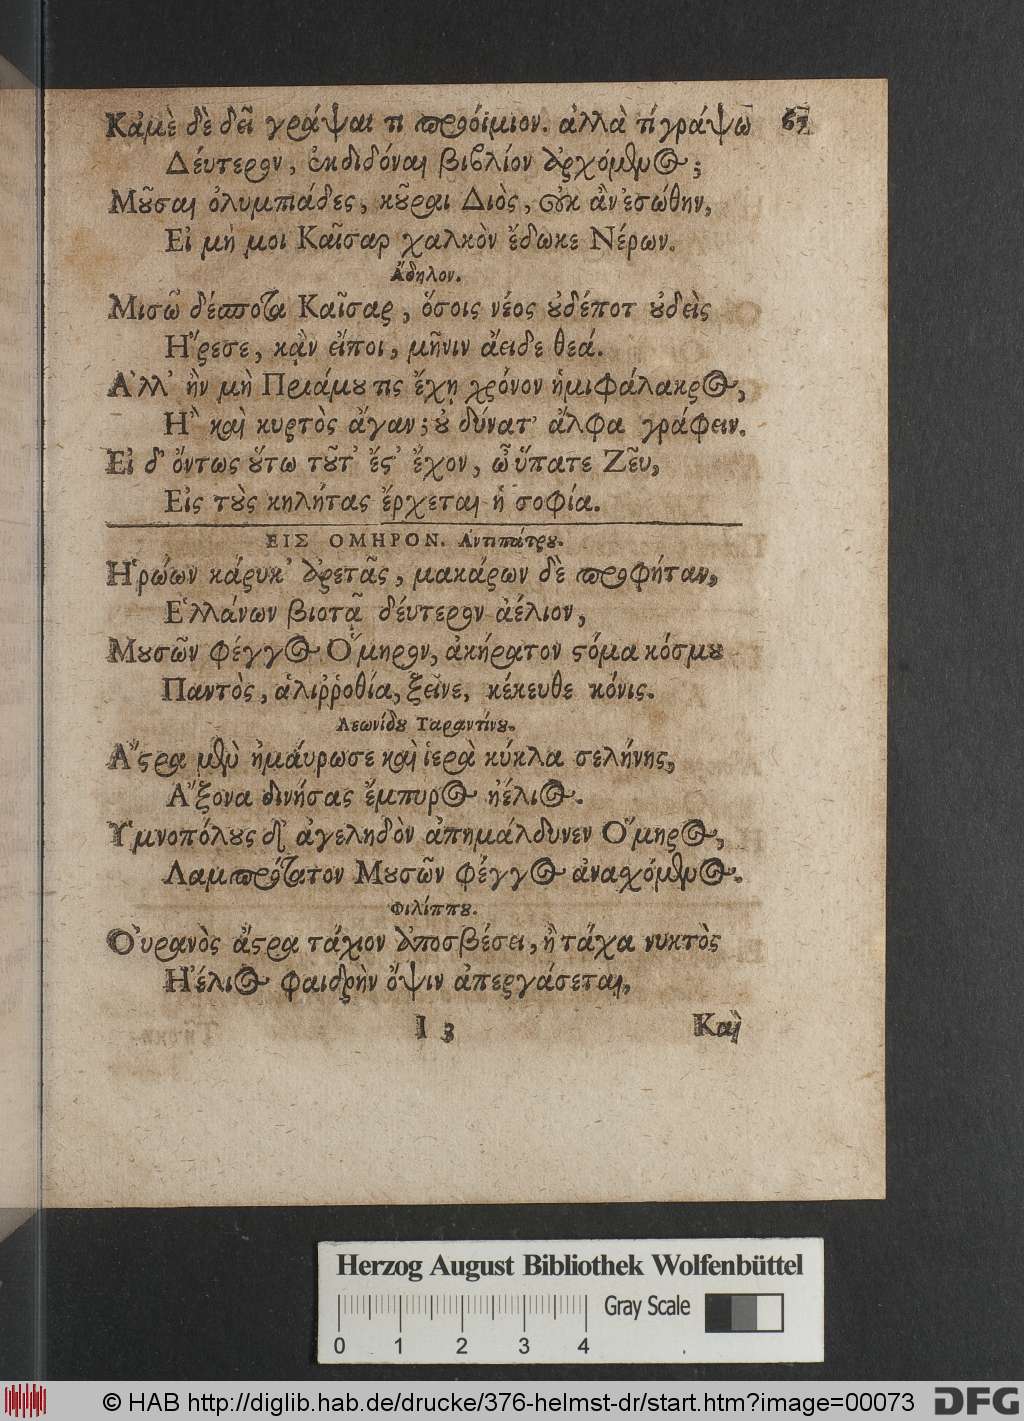 Κᾀμὲ δὲ δεῖ γράψαι τι προοίμιον. ἀλλὰ τί γράψω 67
Δεύτερον, ἐκδιδόναι βιβλίον ἀρχόμενος;
Μοῦσαι ὀλυμπιάδες, κοῦραι Διὸς, οὐκ ἂν ἐσώθην,
Εἰ μή μοι Καῖσαρ χαλκὸν ἔδωκε Νέρων.
Ἄδηλον.
Μισῶ δέσποτα Καῖσαρ, ὅσοις νέος οὐδέποτ οὐδεὶς
Ἤρεσε, κᾂν εἴποι, μῆνιν ἄειδε θεά.
Ἀλλ' ἢν μὴ Πριάμου τις ἔχῃ χρόνον ἡμιφάλακρος,
Ἢ καὶ κυρτὸς ἄγαν; οὐ δύνατ' ἄλφα γράφειν.
Εἰ δ' ὄντως οὕτω τοῦτ' ἔστ' ἔχον, ὦ ὕπατε Ζεῦ,
Εἰς τοὺς κηλήτας ἔρχεται ἡ σοφία.
ΕΙΣ ΟΜΗΡΟΝ. Ἀντιπάτρου.
Ἡρώων κάρυκ' ἀρετᾶς, μακάρων δὲ προφήταν,
Ἑλλάνων βιοτᾷ δεύτερον ἀέλιον,
Μουσῶν φέγγος Ὅμηρον, ἀκήρατον στόμα κόσμου
Παντὸς, ἁλιῤῥοθία, ξεῖνε, κέκευθε κόνις.
Λεωνίδου Ταραντίνου.
Ἄστρα μὲν ἠμαύρωσε καὶ ἱερὰ κύκλα σελήνης,
Ἄξονα δινήσας ἔμπυρος ἠέλιος.
Ὑμνοπόλους δ' ἀγεληδὸν ἀπημάλδυνεν Ὅμηρος,
Λαμπρότατον Μουσῶν φέγγος ἀνασχόμενος.
Φιλίππου.
Οὐρανὸς ἄστρα τάχιον ἀποσβέσει, ἢ τάχα νυκτὸς
Ἠέλιος φαιδρὴν ὄψιν ἀπεργάσεται,
I 3 Καὶ
Herzog August Bibliothek Wolfenbüttel
Gray Scale
0 1 2 3 4
© HAB http://diglib.hab.de/drucke/376-helmst-dr/start.htm?image=00073 DFG